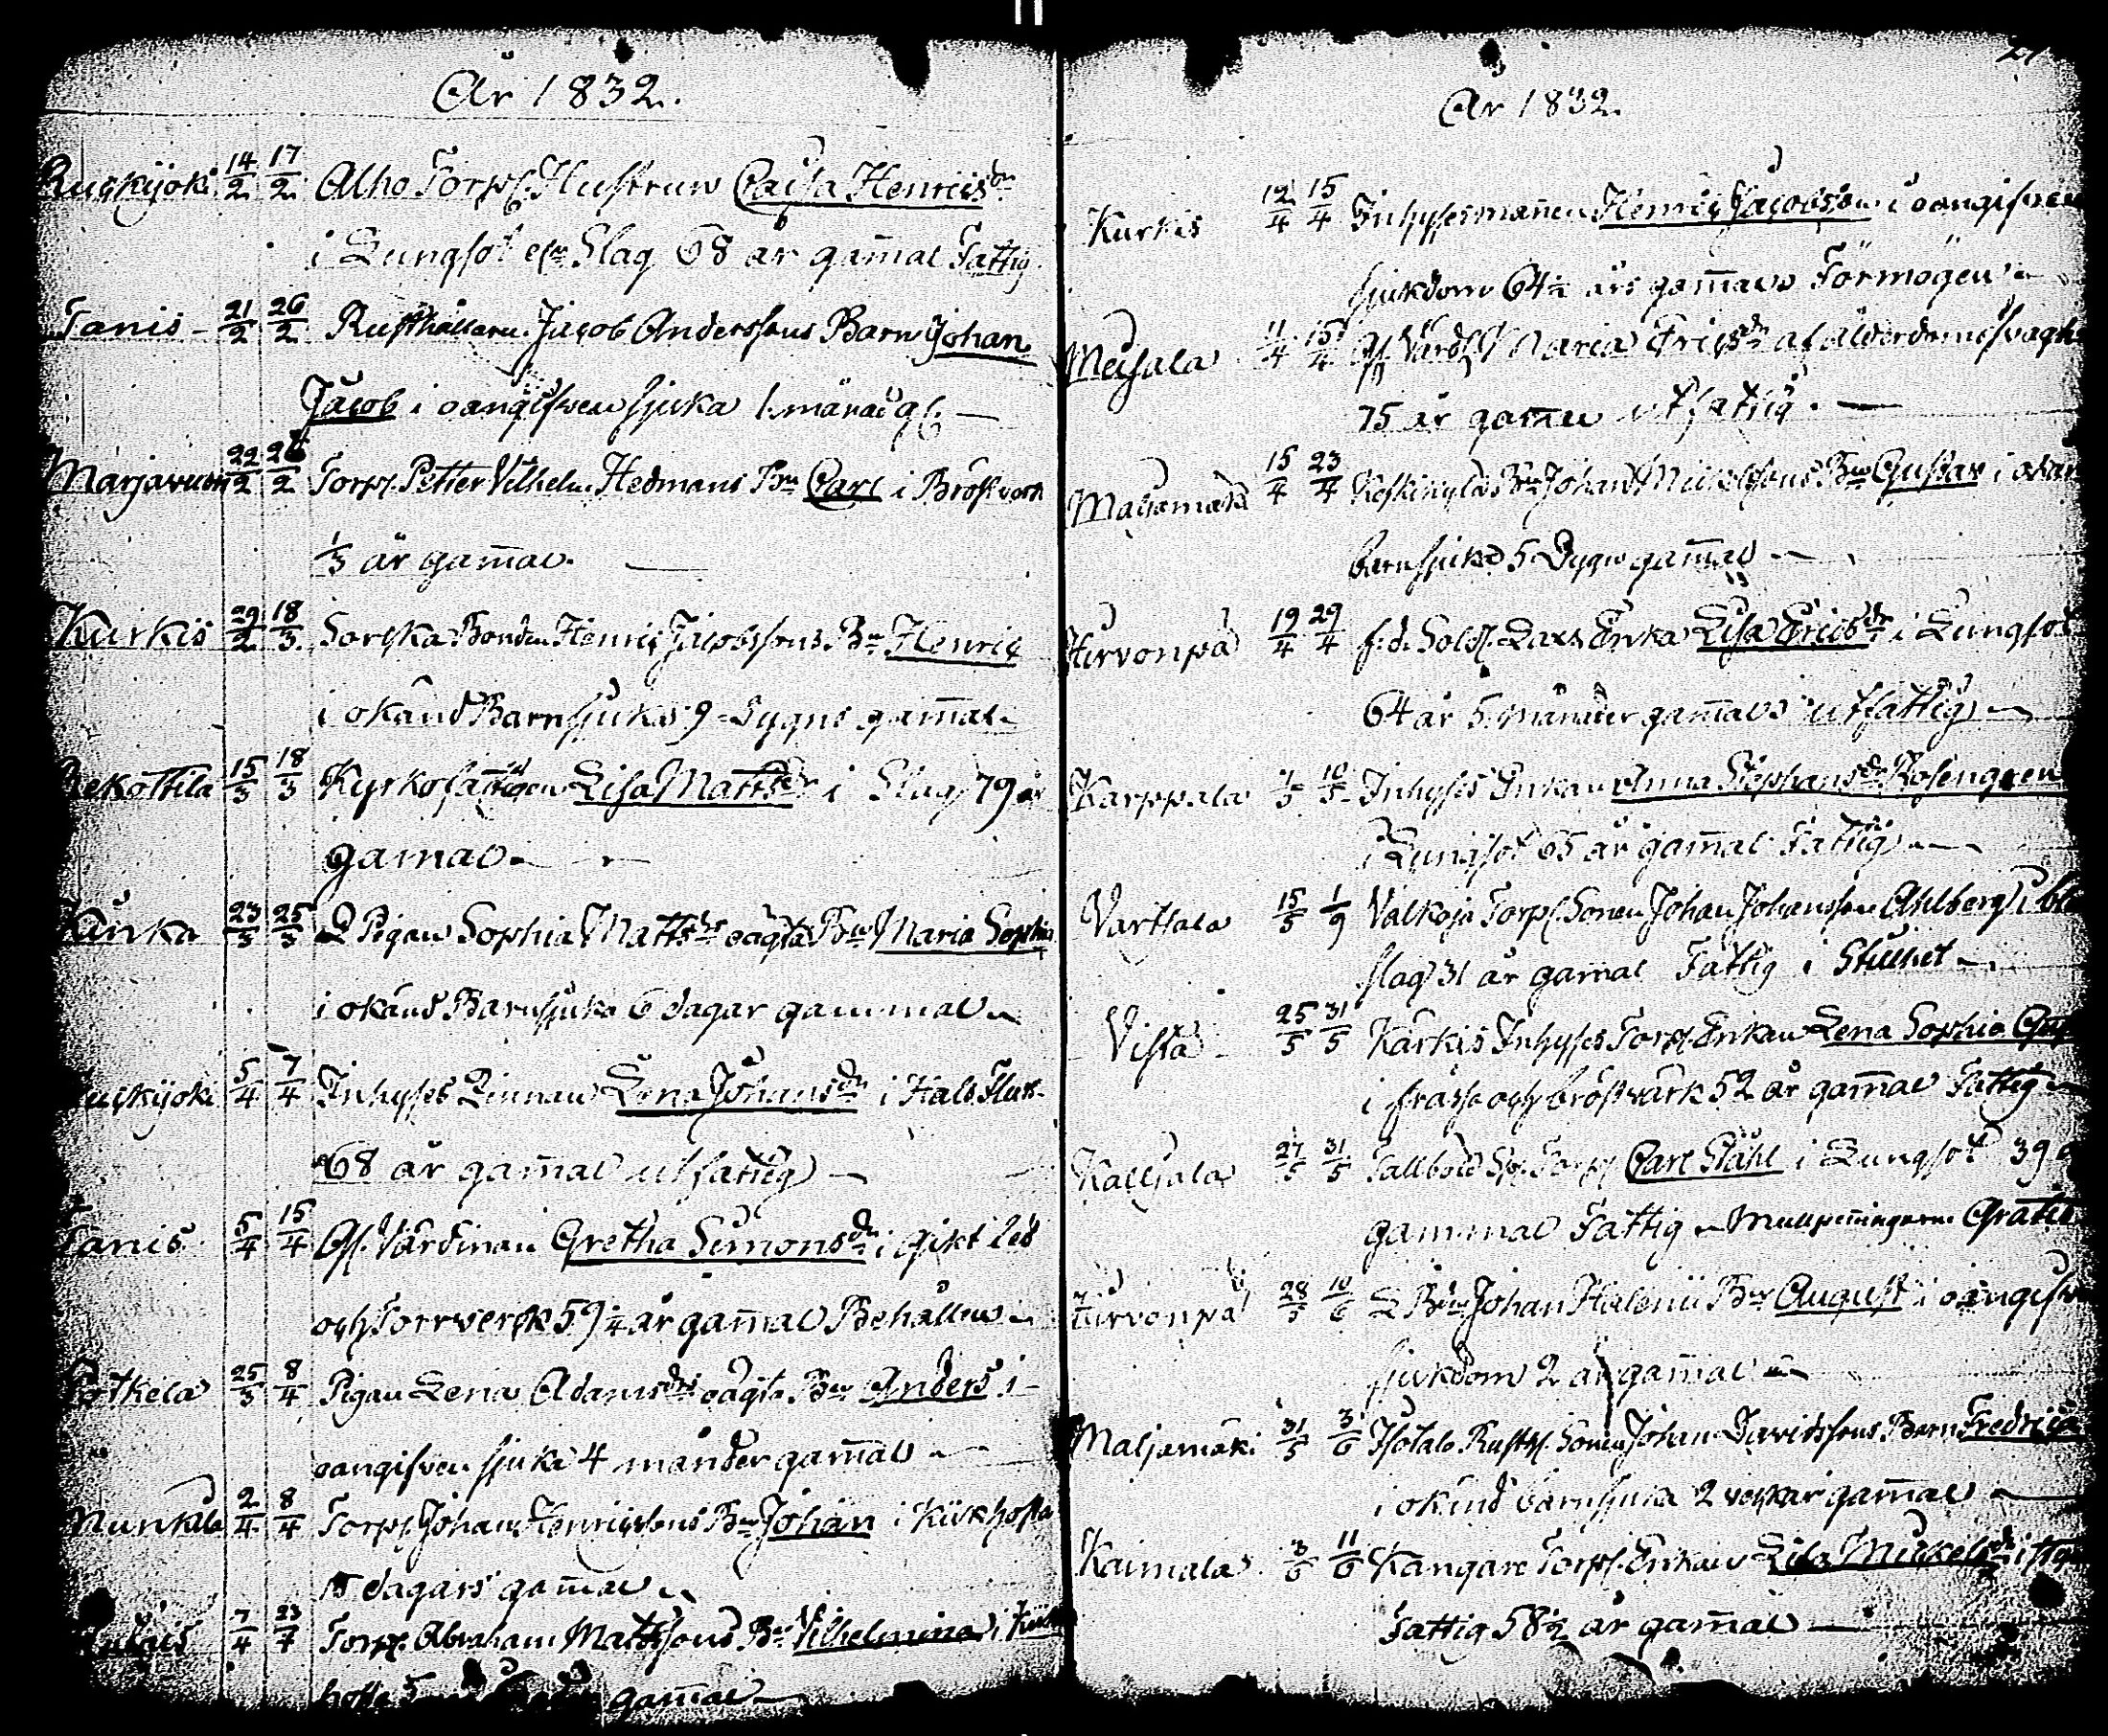 År 1832.
Ruskijoki 14/2 17/2 Alho Torps. Hustrun Caisa Henricsdr
i Lungsot elr Slag 68 år gam̄al Fattig
Tanis 21/2 26/2 Rusthållaren Jacob Anderssons Barn Johan
Jacob i oangifven sjuka 1. månad gl.
Marjavuori 22/2 26/2 Torps. Petter Vilhelm Hedmans Bn Carl i Bröstverk
1/3 år gam̄al.
Kurkis 29/2 18/3 Sorska Bonden Henric Jacobssons Bn Henric
i okänd Barnsjuka 9 Dygns gam̄al
Pekottila 15/3 18/3 Kyrkofattigen Lisa Mattsdr i Slag 79 år
gam̄al
23/3 25/3 Pigan Sophia Mattsdrs oägta Bn Maria Sophia
i okänd Barnsjuka 6 dagar gammal
Ruskijoki 5/4 7/4 Inhyses Qinnan Lena Johansdr i Hals Fluss
68 år gam̄al utfattig
Tanis 5/4 15/4 Gl. Värdinan Gretha Simonsdr i Gikt led
och Torrverk 59 1/4 år gam̄al Behållen
25/3 8/4 Pigan Lena Adamsdrs oägta Bn Anders i
oangifven sjuka 4 månder gam̄al
2/4 8/4 Torps. Johan Henricssons Bn Johan i Kikhosta
15 dagars gam̄al
7/4 23/4 Torps. Abraham Mattssons Bn Vilhelmina i Kik
hosta gam̄al
År 1832.
Kurkis 12/4 15/4 Inhysesmannen Henric Jacobsson i oangifven
sjukdom 64 1/2 års gam̄al Förmögen
Meisala 11/4 15/4 Gl. Värds. Maria Ericsdr af ålderdomssvagh
75 år gam̄al utfattig.
Maljamäki 15/4 23/4 Koskinylds Bn Johan Mickelssons Bn Gustav i okän
barnsjuka 5 Dygn gam̄al
Hirvonpä 19/4 29/4 f.d. Sold. Lax Enka Lisa Ericsdr i Lungsot
64 år 5 månader gam̄al utfattig
Karppala 10/5 Inhyses Enkan Anna Stephansdr Rosengren
i Lungsot 65 år gam̄al Fattig
Varttala 15/5 1/9 Valkoja Torps. Sonen Johan Johansson Ahlberg i blo
slag 31 år gam̄al Fattig i Stillhet
Vista 25/5 31/5 Kärkis Inhyses Torps. Enkan Lena Sophia
i frässa och bröstvärk 52 år gam̄al Fattig
Kallsala 27/5 31/5 Tallbod Torps Carl Ståhl i Lungsot 39
gammal Fattig Mullpenningarne Gratis
Hirvonpä 28/5 10/6 Johan Halenii Bn August i oangifv
sjukdom 2 år gam̄al
Maljamäki 31/5 3/6 Isotalo Rusth. Sonen Johan Davidssons Barn Fredrica
i okänd barnsjuka 2 veckar gam̄al
Kaimala 3/6 11/6 Kangare Torps. Enkan Lisa Mickelsdr i
Fattig 58 1/2 år gam̄al